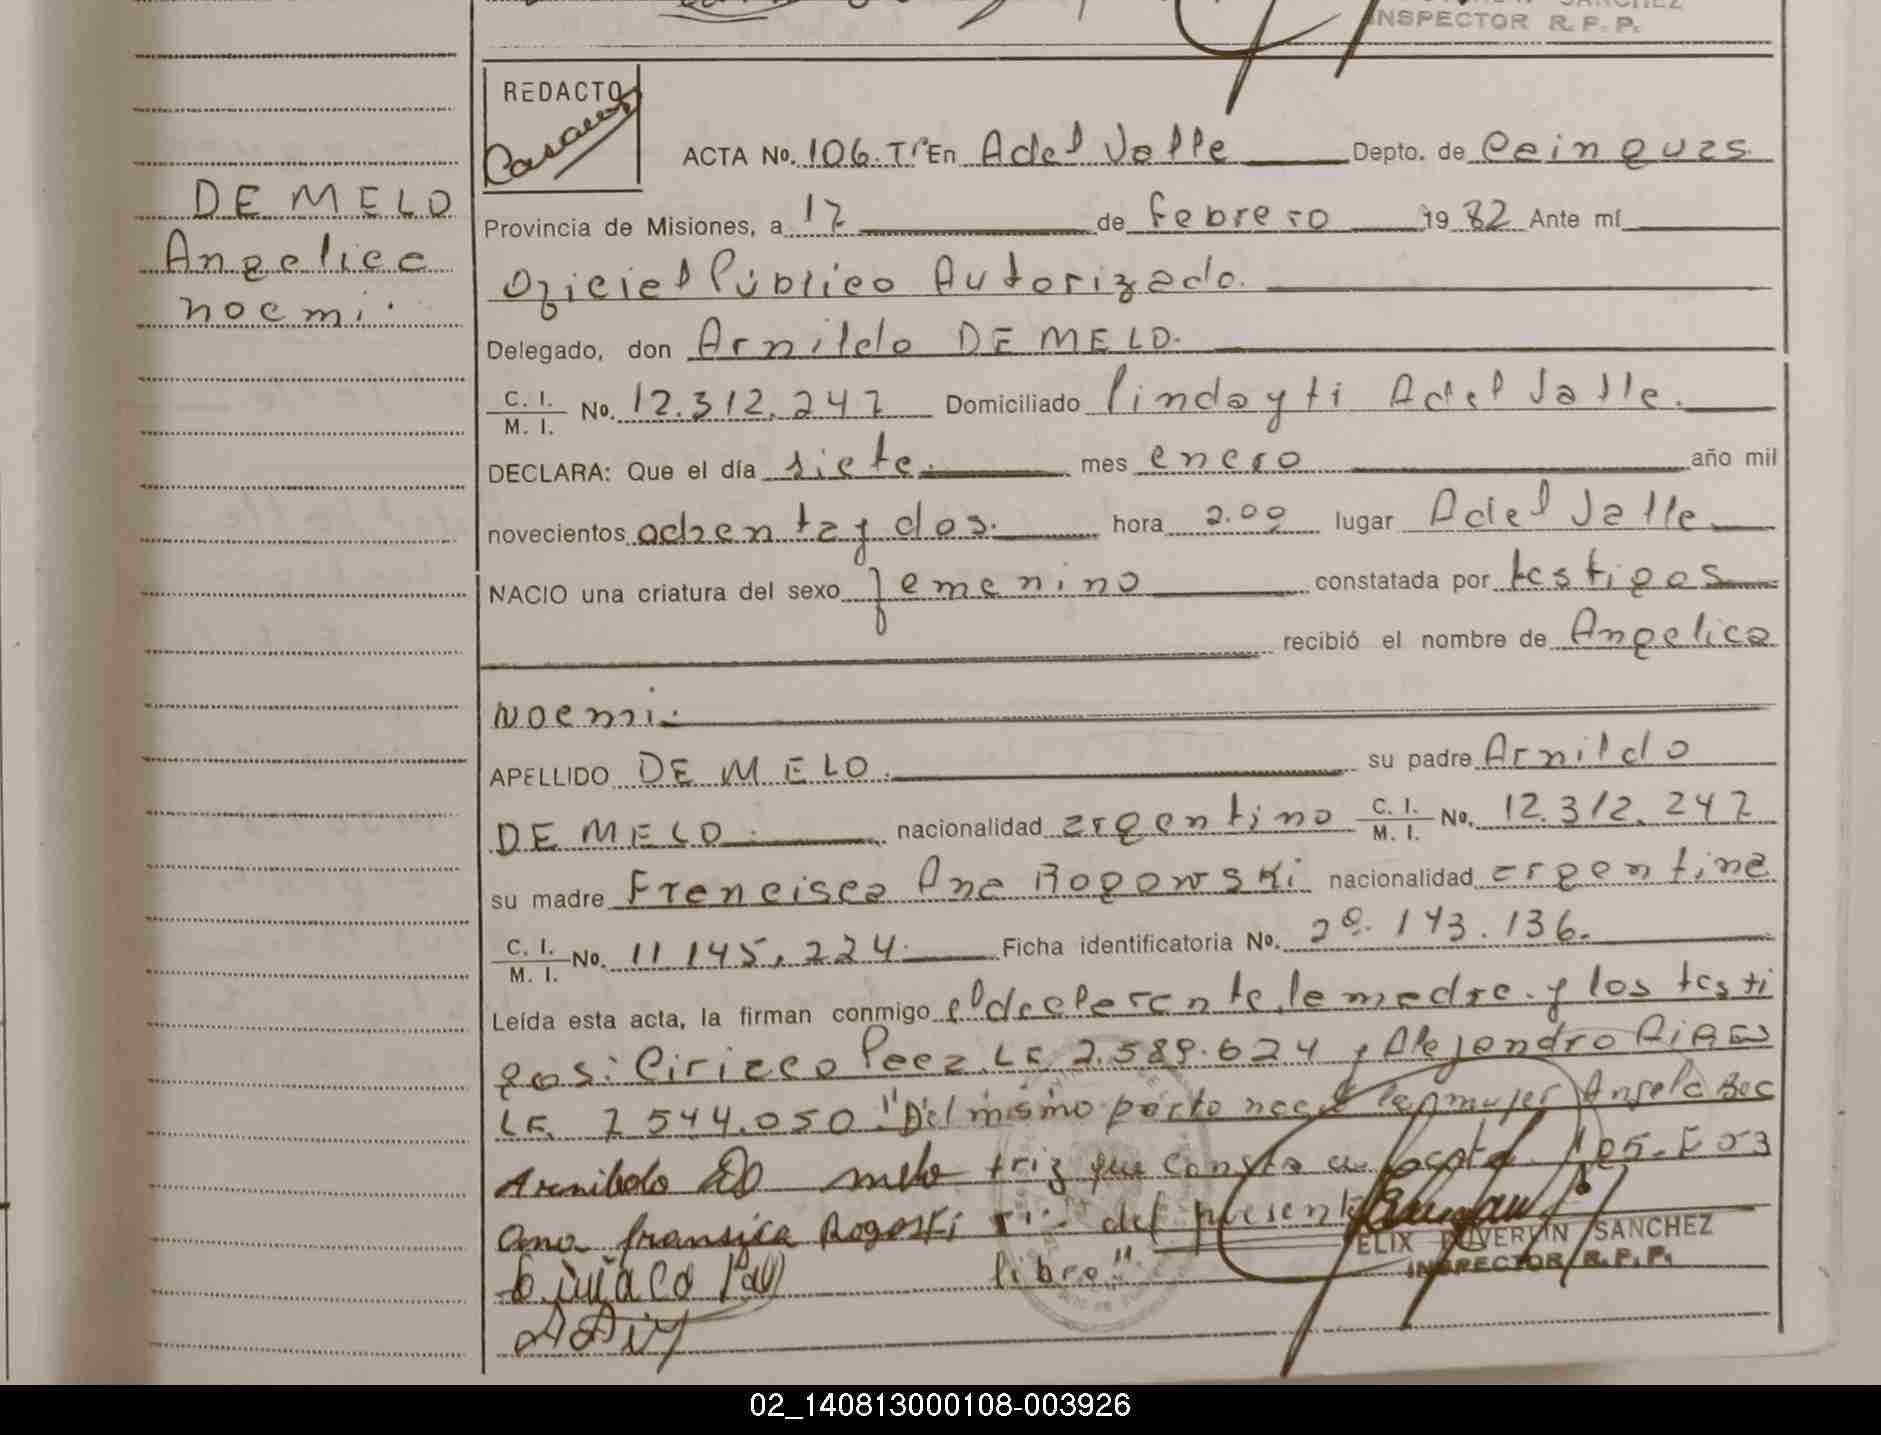 INSPECTOR R.P.P.
REDACTO
ACTA No. 106. Tº En A del Valle Depto. de Cainguas
DE MELO
Angelica
noemi.
Provincia de Misiones, a 17 de Febrero 1982 Ante mí
Oficial Público Autorizado.
Delegado, don Arnildo DE MELO.
C. I. / M. I. No. 12.312.247 Domiciliado Pindayti A del Valle.
DECLARA: Que el día siete. mes enero año mil
novecientos ochenta y dos. hora 2.00 lugar A del Valle
NACIO una criatura del sexo femenino constatada por testigos
recibió el nombre de Angelica
Noemi.
APELLIDO DE MELO. su padre Arnildo
DE MELO. nacionalidad argentino C. I. / M. I. No. 12.312.247
su madre Francisca Ana Rogowski nacionalidad argentina
C. I. / M. I. No. 11 145.224 Ficha identificatoria No. 20.143.136.
Leída esta acta, la firman conmigo el declarante, la madre. y los testi
gos: Ciriaco Paez LE 2.589.624 y Alejandro
LE. 7 544.050 "Del mismo parto nació la mujer Angela Bea
Arnildo De melo triz que consta en acta 105.
Ana fransica Rogoski del presente
Ciriaco libro".
FELIX DUVERLIN SANCHEZ
INSPECTOR R.P.P.
02_140813000108-003926